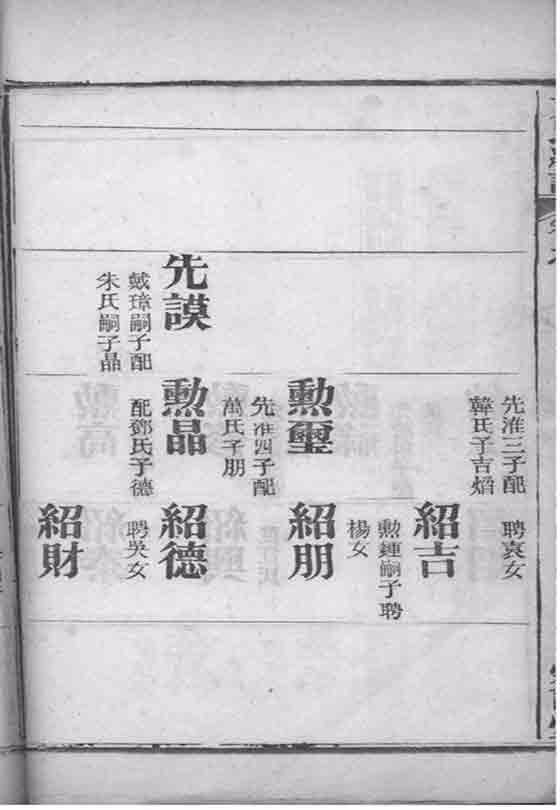 先謨
戴璋嗣子配
朱氏嗣子晶
先淮三子配
韓氏子吉焰
勳璽
先淮四子配
萬氏子朋
勳晶
配鄧氏子德
聘袁女
紹吉
勳鍾嗣子聘
楊女
紹朋
紹德
聘吳女
紹財